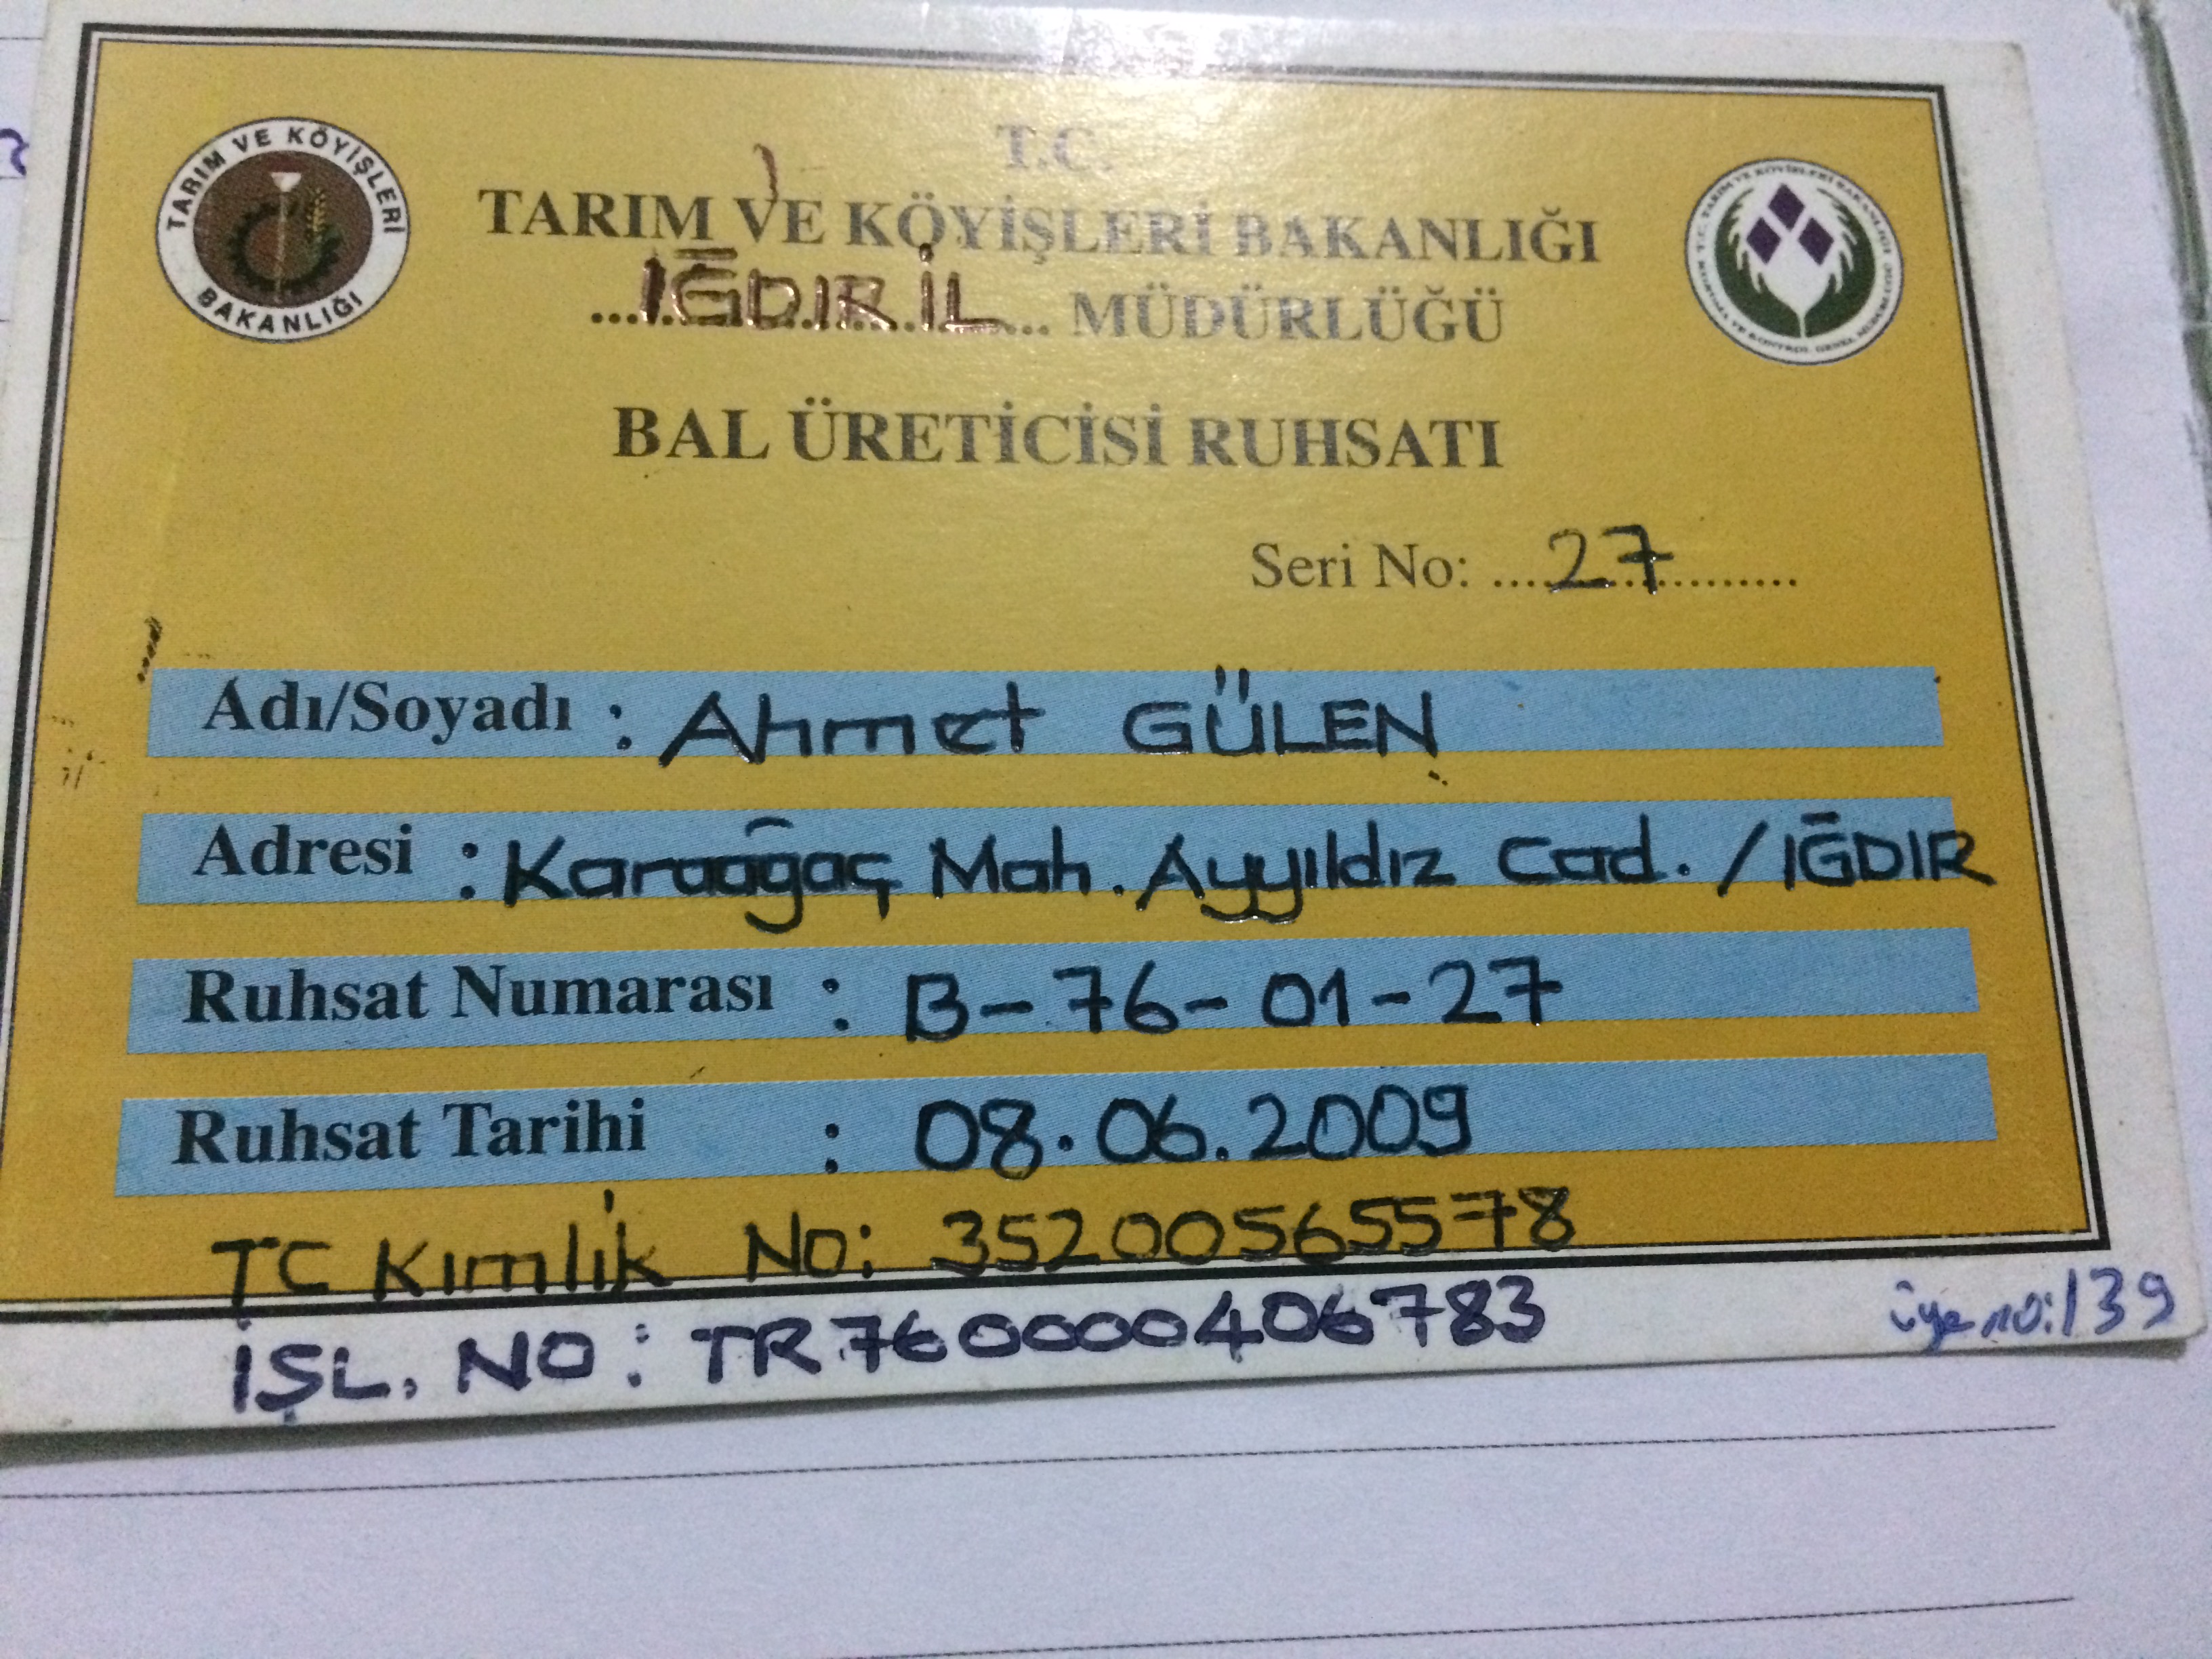 TARIM VE KÖYİŞLERİ BAKANLIĞI
T.C.
TARIM VE KÖYİŞLERİ BAKANLIĞI
IĞDIR İL MÜDÜRLÜĞÜ
BAL ÜRETİCİSİ RUHSATI
Seri No: 27
Adı/Soyadı : Ahmet GÜLEN
Adresi : Karaağaç Mah. Ayyıldız Cad. / IĞDIR
Ruhsat Numarası : B-76-01-27
Ruhsat Tarihi : 08.06.2009
TC Kimlik No: 35200565578
İŞL. NO: TR760000406783
üye no: 139